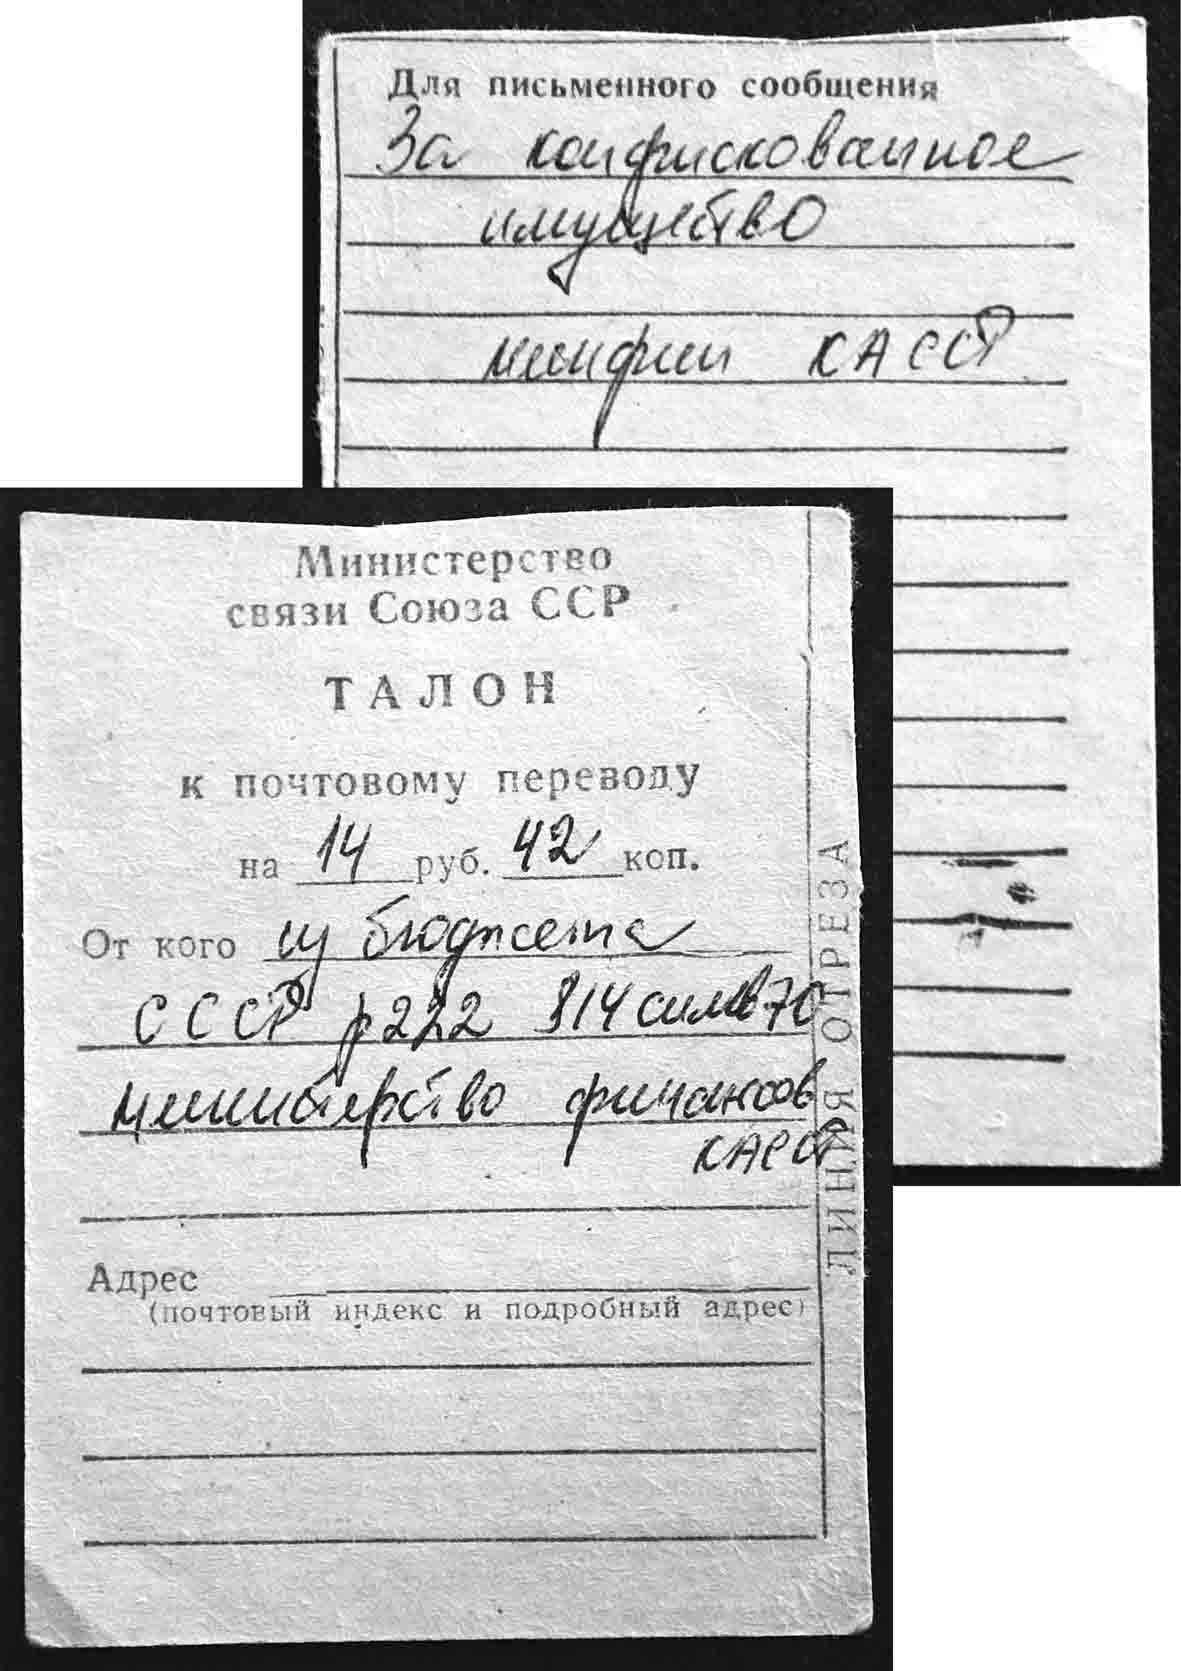 Для письменного сообщения
За конфискованное
имущество
минфин КАССР
Министерство
связи Союза ССР
ТАЛОН
к почтовому переводу
на 14 руб. 42 коп.
От кого из бюджета
СССР р222 814 симв 70
министерство финансов
КАССР
Адрес
(почтовый индекс и подробный адрес)
ЛИНИЯ ОТРЕЗА